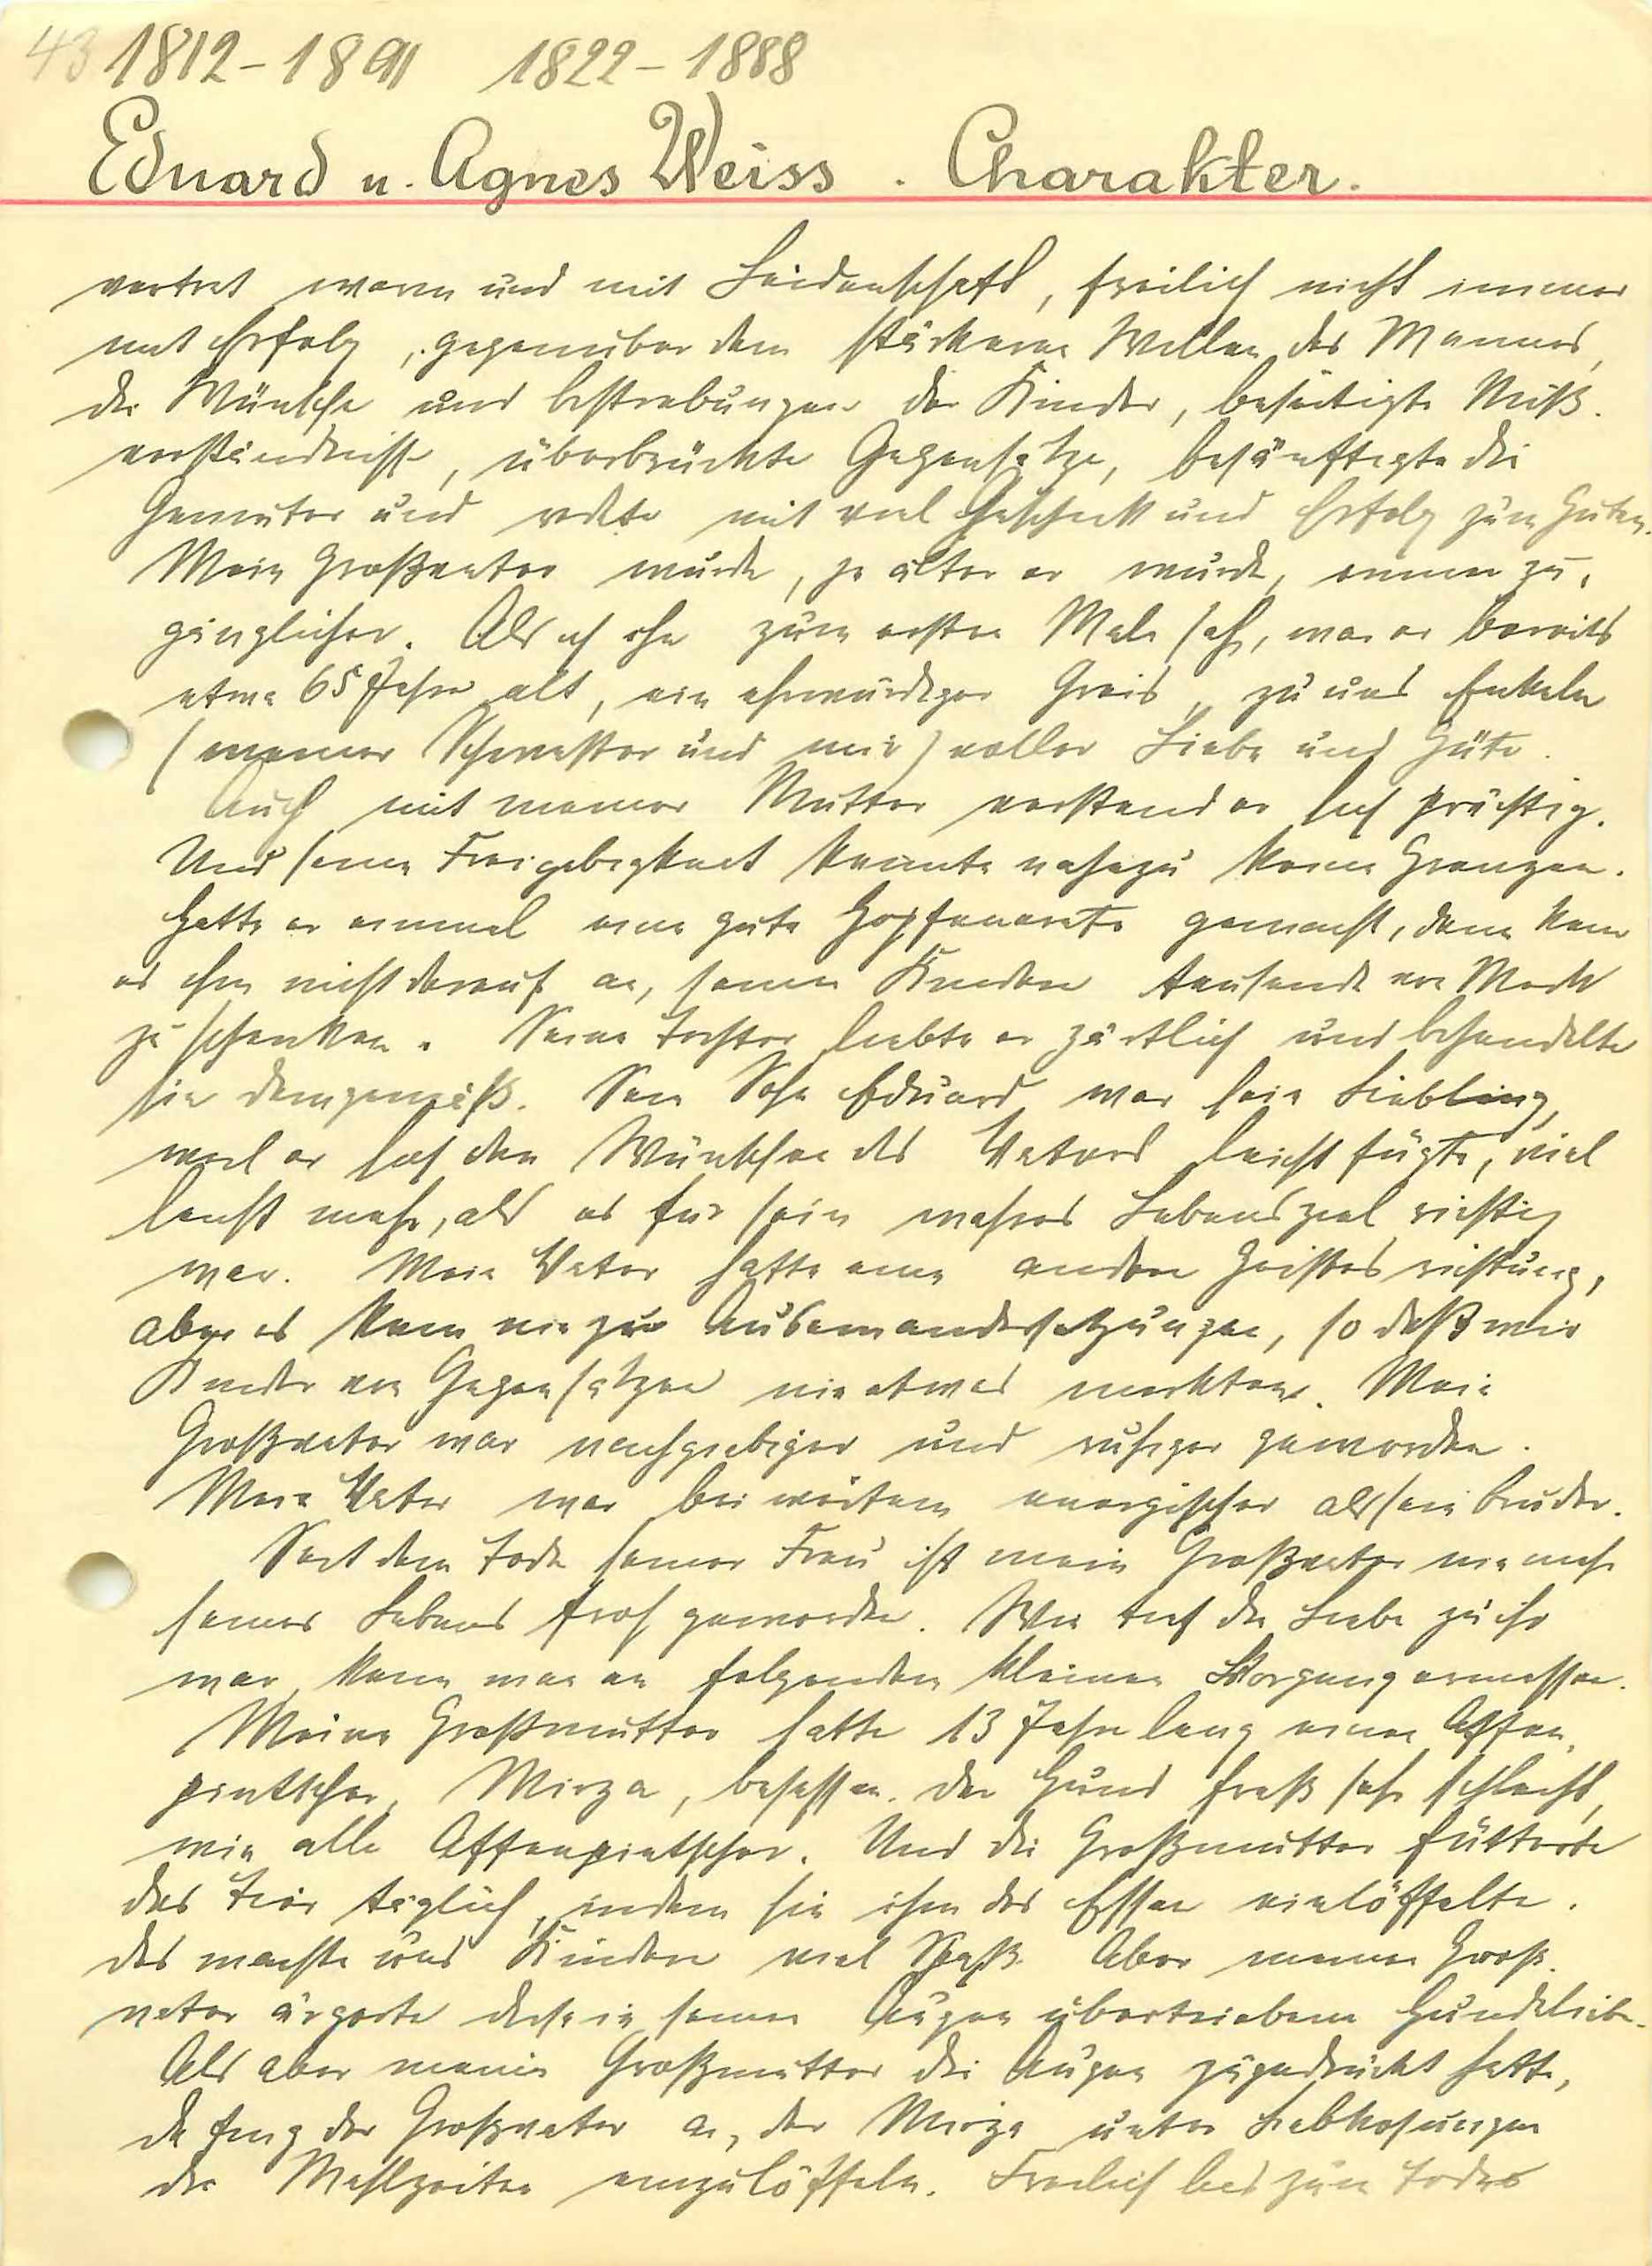 43 1812-1891 1822-1888
Eduard u. Agnes Weiss. Charakter.
vertrat warm und mit Leidenschaft, freilich nicht immer
mit Erfolg, gegenüber dem stärkeren Willen des Mannes,
die Wünsche und Bestrebungen der Kinder, beseitigte Miß-
verständnisse, überbrückte Gegensätze, besänftigte die
Gemüter und redete mit viel Geschick und Erfolg zum Guten.
Mein Großvater wurde, je älter er wurde, immer zu-
gänglicher. Als ich ihn zum ersten Male sah, war er bereits
etwa 65 Jahre alt, ein ehrwürdiger Greis, zu uns Enkeln
(meiner Schwester und mir) voller Liebe und Güte.
Auch mit meiner Mutter verstand er sich prächtig.
Und seine Freigebigkeit kannte nahezu keine Grenzen.
Hatte er einmal eine gute Hopfenernte gemacht, dann kam
es ihm nicht darauf an, seinen Kindern tausende von Mark
zu schenken. Seine Tochter liebte er zärtlich und behandelte
sie demgemäß. Sein Sohn Eduard war sein Liebling,
weil er sich den Wünschen des Vaters leicht fügte, viel
leicht mehr, als es für sein wahres Lebensziel richtig
war. Mein Vater hatte eine andere Geistesrichtung,
aber es kam nie zu Auseinandersetzungen, so daß wir
Kinder von Gegensätzen nie etwas merkten. Mein
Großvater war nachgiebiger und ruhiger geworden.
Mein Vater war bei weitem energischer als sein Bruder.
Seit dem Tode seiner Frau ist mein Großvater nie mehr
seines Lebens froh geworden. Wie tief die Liebe zu ihr
war, kann man an folgendem kleinen Vorgang ermessen.
Meine Großmutter hatte 13 Jahre lang einen Affen-
pintscher, Mirza, besessen. Der Hund fraß sehr schlecht,
wie alle Affenpintscher. Und die Großmutter fütterte
das Tier täglich, indem sie ihm das Essen einlöffelte.
Das machte uns Kindern viel Spaß. Aber meinen Groß-
vater ärgerte diese in seinen Augen übertriebene Hundeliebe.
Als aber meine Großmutter die Augen zugedrückt hatte,
da fing der Großvater an, der Mirza unter Liebkosungen
die Mahlzeiten einzulöffeln. Freilich bis zum Tode